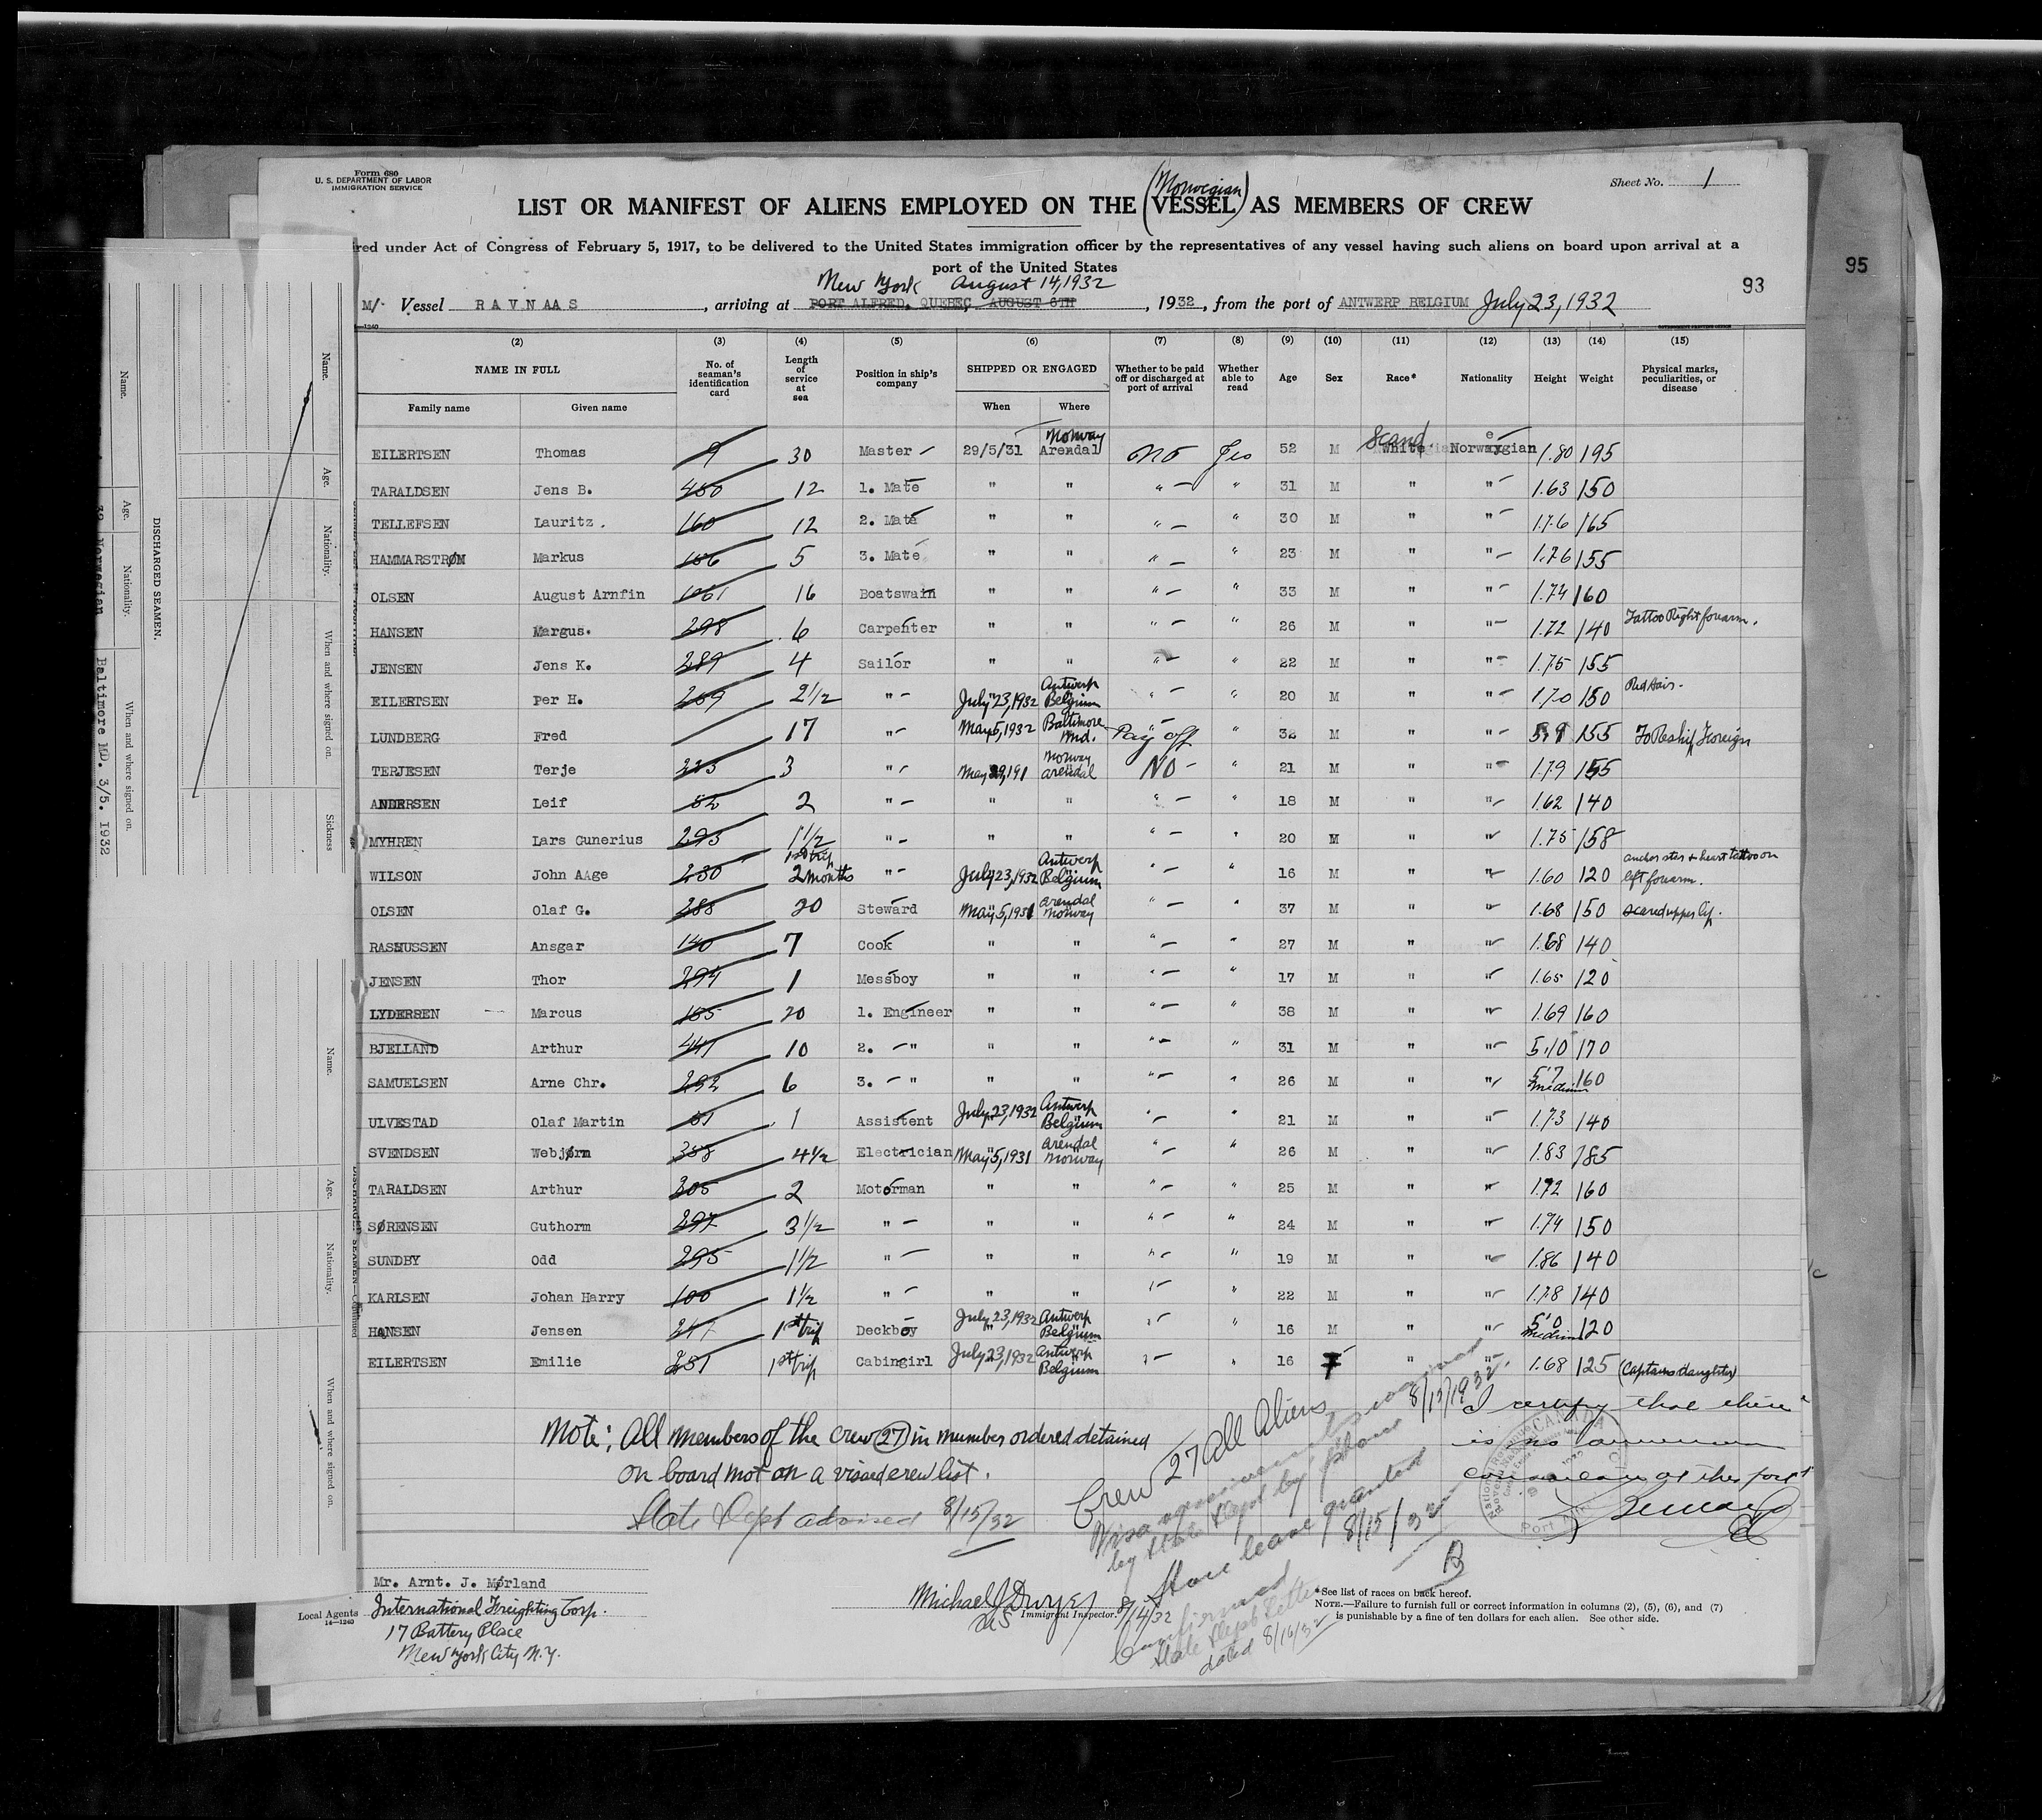 Form 680
U. S. DEPARTMENT OF LABOR
IMMIGRATION SERVICE
Sheet No. 1
(Norwegian)
LIST OR MANIFEST OF ALIENS EMPLOYED ON THE VESSEL AS MEMBERS OF CREW
ired under Act of Congress of February 5, 1917, to be delivered to the United States immigration officer by the representatives of any vessel having such aliens on board upon arrival at a
port of the United States
95
93
New York August 14, 1932
M/ Vessel RAVNAAS, arriving at PORT ALFRED, QUEBEC, AUGUST 6TH, 1932, from the port of ANTWERP BELGIUM July 23, 1932
(2) (3) (4) (5) (6) (7) (8) (9) (10) (11) (12) (13) (14) (15)
NAME IN FULL No. of seaman's identification card Length of service at sea Position in ship's company SHIPPED OR ENGAGED Whether to be paid off or discharged at port of arrival Whether able to read Age Sex Race* Nationality Height Weight Physical marks, peculiarities, or disease
Family name Given name When Where
EILERTSEN Thomas 9 30 Master 29/5/31 Norway Arendal No Yes 52 M Scand. White Norwegian 1.80 195
TARALDSEN Jens B. 450 12 1. Mate " " " " 31 M " " 1.63 150
TELLEFSEN Lauritz. 160 12 2. Mate " " " " 30 M " " 1.76 165
HAMMARSTRØM Markus 156 5 3. Mate " " " " 23 M " " 1.76 155
OLSEN August Arnfin 16 Boatswain " " " " 33 M " " 1.74 160
HANSEN Margus. 298 6 Carpenter " " " " 26 M " " 1.72 140 Tattoo Right forearm.
JENSEN Jens K. 289 4 Sailor " " " " 22 M " " 1.75 155
EILERTSEN Per H. 259 2 1/2 " July 23, 1932 Antwerp Belgium " " 20 M " " 1.70 150 Red hair.
LUNDBERG Fred 17 " May 5, 1932 Baltimore Md. Pay off " 32 M " " 5,9 155 To Reship Foreign
TERJESEN Terje 225 3 " Norway Arendal No " 21 M " " 1.79 155
ANDERSEN Leif 52 2 " " " " " 18 M " " 1.62 140
MYHREN Lars Gunerius 293 1 1/2 " " " " " 20 M " " 1.75 158
WILSON John AAge 230 1st trip 2 months " July 23, 1932 Antwerp Belgium " " 16 M " " 1.60 120 anchor star & heart tattoo on left forearm.
OLSEN Olaf G. 288 20 Steward May 5, 1931 Arendal Norway " " 37 M " " 1.68 150 scared upper lip.
RASMUSSEN Ansgar 140 7 Cook " " " " 27 M " " 1.68 140
JENSEN Thor 294 1 Messboy " " " " 17 M " " 1.65 120
LYDERSEN Marcus 185 20 1. Engineer " " " " 38 M " " 1.69 160
BJELLAND Arthur 441 10 2. " " " " " 31 M " " 5,10 170
SAMUELSEN Arne Chr. 292 6 3. " " " " " 26 M " " 5'7 medium 160
ULVESTAD Olaf Martin 61 1 Assistent July 23, 1932 Antwerp Belgium " " 21 M " " 1.73 140
SVENDSEN Webjørn 358 4 1/2 Electrician May 5, 1931 Arendal Norway " " 26 M " " 1.83 185
TARALDSEN Arthur 305 2 Motorman " " " " 25 M " " 1.72 160
SØRENSEN Guthorm 297 3 1/2 " " " " " 24 M " " 1.74 150
SUNDBY Odd 295 1 1/2 " " " " " 19 M " " 1.86 140
KARLSEN Johan Harry 100 1 1/2 " " " " " 22 M " " 1.78 140
HANSEN Jensen 247 1st trip Deckboy July 23, 1932 Antwerp Belgium " " 16 M " " 5'0 medium 120
EILERTSEN Emilie 251 1st trip Cabingirl July 23, 1932 Antwerp Belgium " " 16 F " " 1.68 125 (Captains daughter)
Note: All members of the crew (27) in number ordered detained
on board not on a visaed crew list.
State Dept advised 8/15/32
Crew 27 all Aliens
Visa requirements waived
by State Dept by phone 8/15/1932
Shore leave granted
8/15/32
B
Confirmed
State Dept Letter
dated 8/16/32
I certify that there
is no American
at this port
CANADA
Mr. Arnt. J. Mørland
Local Agents International Freighting Corp.
14—1240
17 Battery Place
New York City N.Y.
Michael J Dwyer
Immigrant Inspector. 8/14/32
*See list of races on back hereof.
NOTE.—Failure to furnish full or correct information in columns (2), (5), (6), and (7)
is punishable by a fine of ten dollars for each alien. See other side.
DISCHARGED SEAMEN.
Name. Age. Nationality. When and where signed on.
Norwegian Baltimore MD. 3/5. 1932
Name. Age. Nationality. When and where signed on. Sickness
Name. Age. Nationality. When and where signed on.